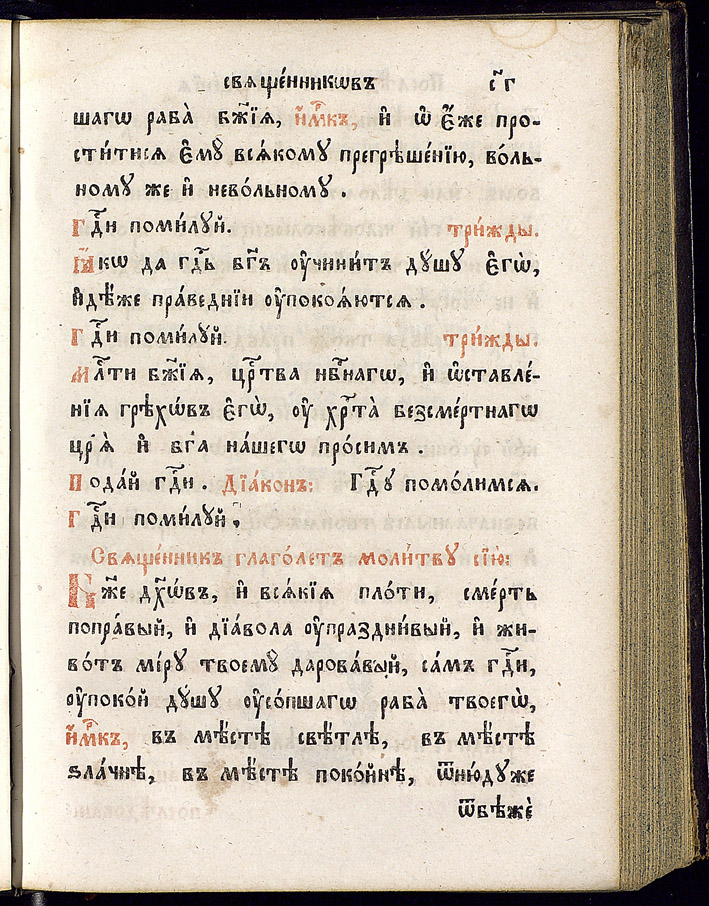 свяще́нникѡвъ с҃г
шагѡ раба̀ бж҃їѧ, и҆мⷬ҇къ, и҆ ѡ҆ є҆́же про-
сти́тисѧ є҆мꙋ̀ всѧ́комꙋ прегрѣше́нїю, во́ль-
номꙋ же и҆ нево́льномꙋ.
Гдⷭ҇и поми́лꙋй. три́жды.
Ꙗ҆́кѡ да гдⷭ҇ь бг҃ъ ᲂу҆чини́тъ дꙋшꙋ̀ є҆гѡ̀,
и҆дѣ́же пра́веднїи ᲂу҆покоѧ́ютсѧ.
Гдⷭ҇и поми́лꙋй. три́жды.
Млⷭ҇ти бж҃їѧ, црⷭ҇тва нбⷭ҇нагѡ, и҆ ѡ҆ставле́-
нїѧ грѣхѡ́въ є҆гѡ̀, ᲂу҆ хрⷭ҇та̀ безсме́ртнагѡ
цр҃ѧ̀ и҆ бг҃а на́шегѡ про́симъ.
Пода́й гдⷭ҇и. Дїа́конъ: Гдⷭ҇ꙋ помо́лимсѧ.
Гдⷭ҇и поми́лꙋй.
Свяще́нникъ глаго́летъ моли́твꙋ сїю̀:
Бж҃е дх҃ѡ́въ, и҆ всѧ́кїѧ пло́ти, сме́рть
попра́вый, и҆ дїа́вола ᲂу҆праздни́вый, и҆ жи-
во́тъ мі́рꙋ твоемꙋ̀ дарова́вый, са́мъ гдⷭ҇и,
ᲂу҆поко́й дꙋ́шꙋ ᲂу҆со́пшагѡ раба̀ твоегѡ̀,
и҆мⷬ҇къ, въ мѣ́стѣ свѣ́тлѣ, въ мѣ́стѣ
ѕла́чнѣ, въ мѣ́стѣ поко́йнѣ, ѿню́дꙋже
ѿбѣжѐ